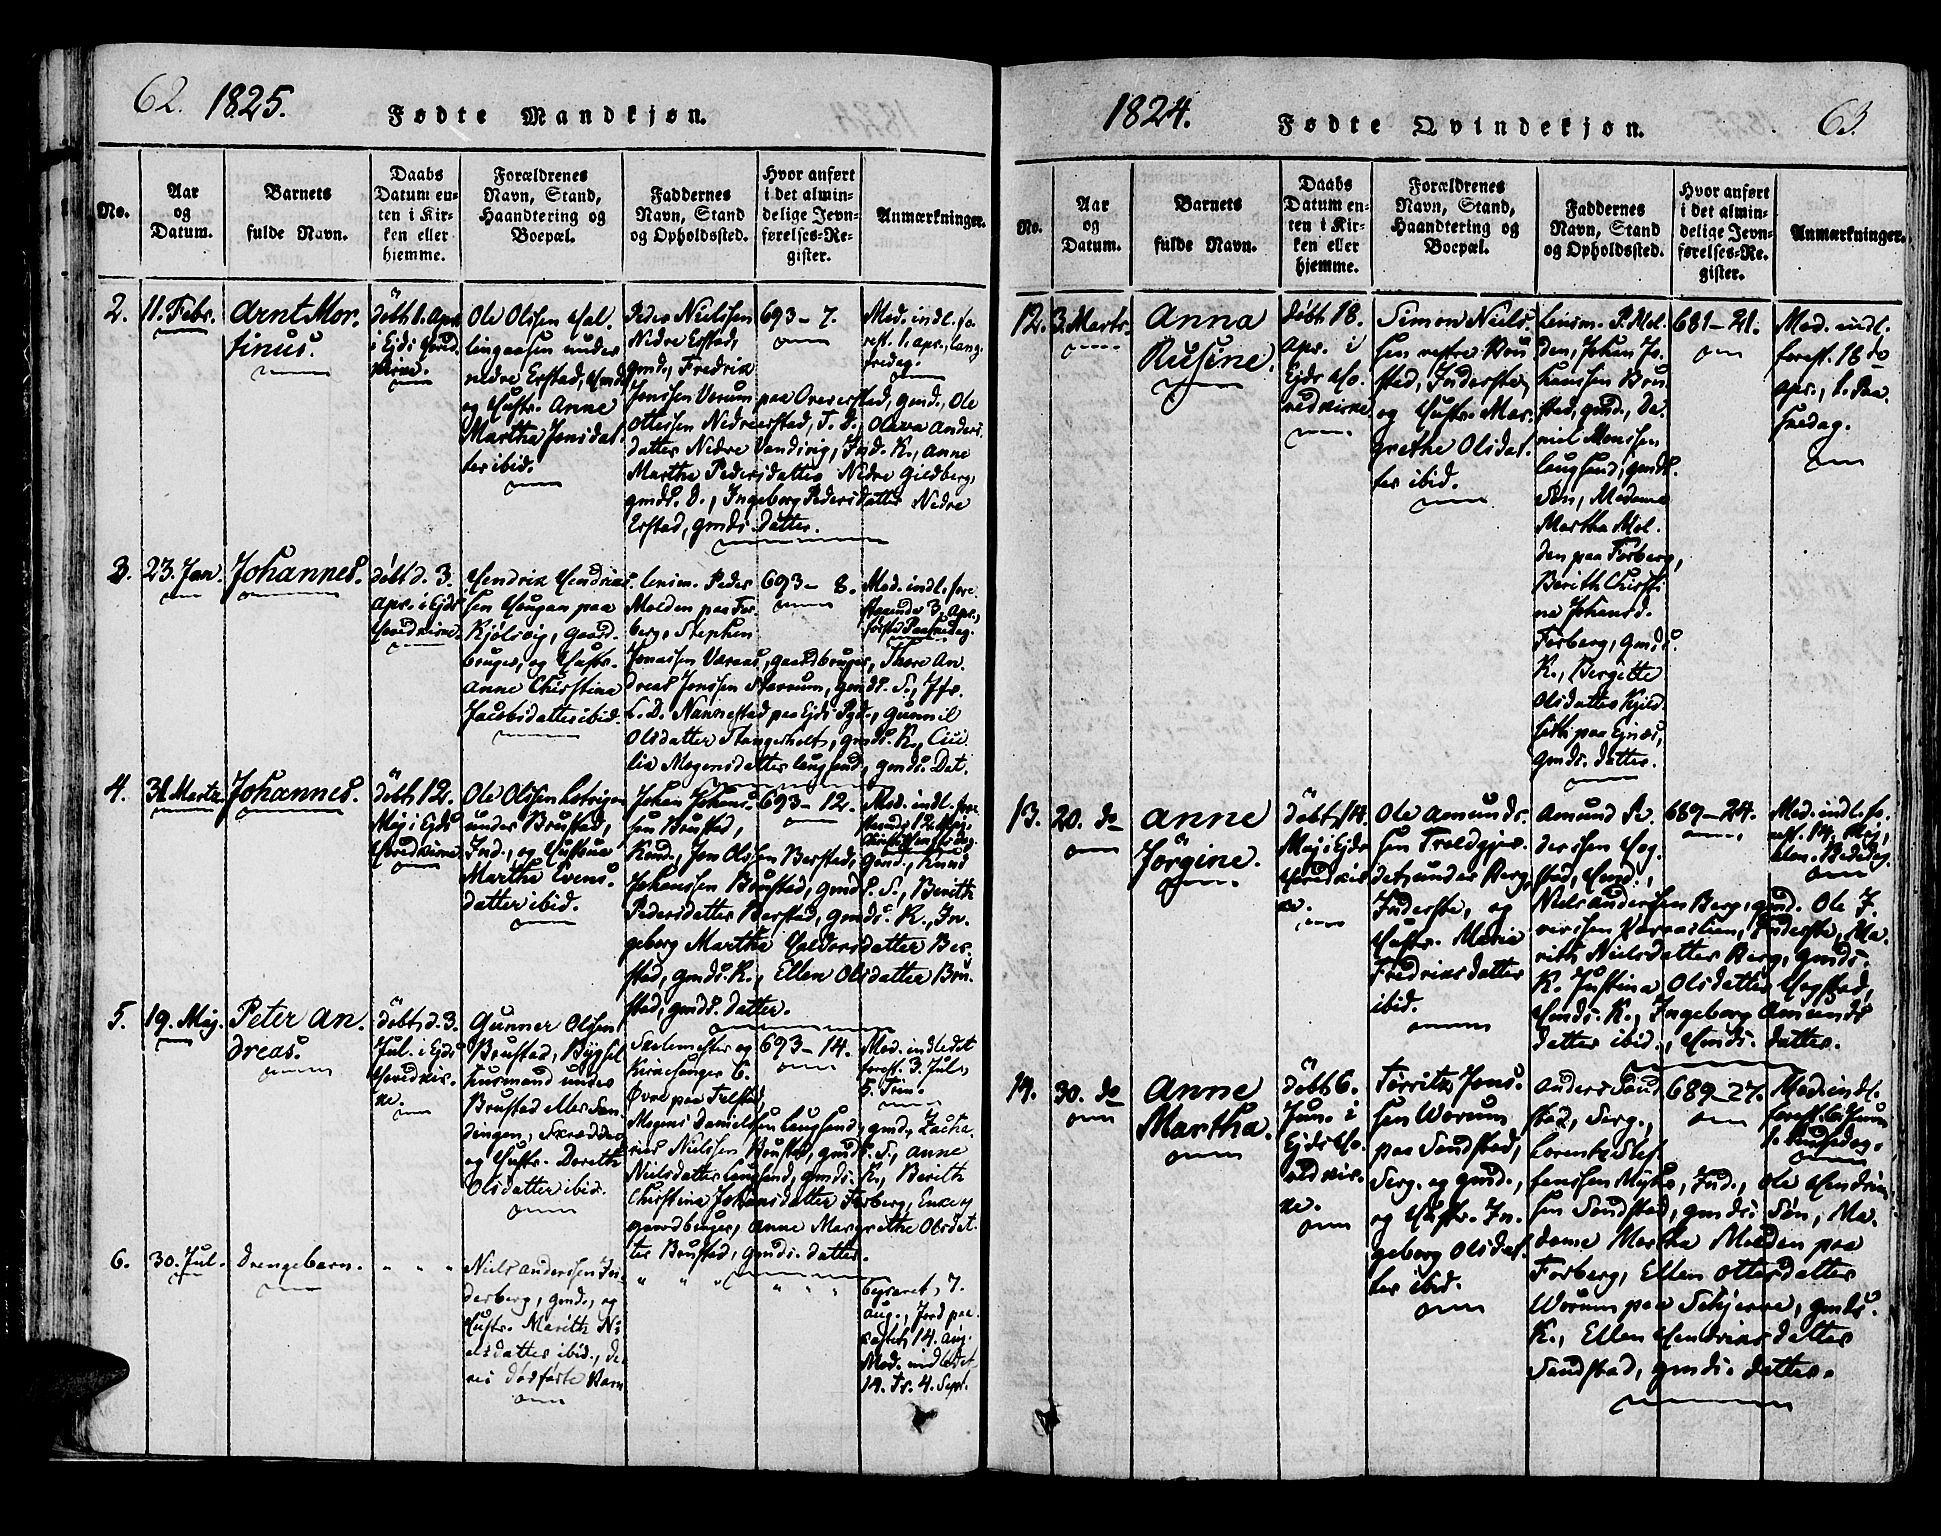 62. 1825.
Fødte Mandkjøn.
No.
Aar
og
Datum.
Barnets
fulde Navn.
Daabs
Datum en-
ten i Kir-
ken eller
hjemme.
Forældrenes
Navn, Stand,
Haandtering og
Boepæl.
Faddernes
Navn, Stand
og Opholdssted.
Hvor anført
i det almin-
delige Jevn-
førelses-Re-
gister.
Anmærkninger.
2.
11. Febr.
Arnt Mor-
tinus.
døbt 1. Apr.
i Ejds Hoved-
kirke.
Ole Olssen Hal-
lingaasen under
nedre Erstad,
og Hustr. Anne
Martha Jonsdat-
ter ibid.
Peder Nielssen
Nedre Erstad,
gmd., Fredrik
Jonssen Værum paa Overerstad, gmd., Ole
Ottessen Nedreerstad, Oleva Anders-
datter Nedre Anne
Martha Pedersdatter Nedre Gieldberg,
gmds. D., Ingeborg Pedersdatter Nedre
Erstad, gmds. datter.
693 - 7.
Mod. indl. fo-
rest. 1. apr., lang-
fredag.
3.
23. Jan.
Johannes.
døbt d. 3.
Apr. i Ejds
Hovedkirke.
Hendrik Hendriks-
sen Hougan paa
Kjølsvig, Gaard-
bruger, og Hustr.
Anne Christina
Jacobsdatter ibid.
lensm. Peder
Molden paa For-
berg, Stephen
Jonassen gaardbruger, Thore An-
dreas Jonssen gmds. S., Jfr.
L. D. Nannestad paa Ejds Pgd., Gunnil
Olsdatter Stangerholt, gmds. K., Cici-
lia Mogensdatter laugsand, gmds. Dat.
693 - 8.
Mod. indl. fore-
staaende 3. Apr.,
første Paaskedag.
4.
31. Marts.
Johannes.
døbt 12.
Maj i Ejds
Hovedkirke.
Ole Olssen
under Brustad,
Ind., og Hustrue
Martha Evens-
datter ibid.
Johan Johans-
sen Brustad,
Jon Olssen Berstad, gmd., Knud
Johanssen Brustad, gmds. S., Berith
Pedersdatter Berstad, gmds. K., In-
geborg Martha Haldorsdatter Ber-
stad, gmds. K., Ellen Olsdatter Bru-
stad, gmds. datter.
693 - 12.
Mod. indl. fore-
staaende 12. Maj,
5.
19. Maj.
Peter An-
dreas.
døbt d. 3.
Jul. i Ejds
Hovedkir-
ke.
Gunner Olssen
Brustad, Bygsel-
husmand under
Brustad eller San-
dingen, Skrædder
og Hustr. Dorethe
Olsdatter ibid.
Skolemester og
Kirkesanger C.
Øvre paa Tilstad,
Mogens Danielssen laugsand, gmd., Zacha-
rias Nielssen Brustad, gmds. S., Anne
Nielsdatter laugsand, gmds. K., Berith
Christina Johansdatter Forberg, Enke og
gaardbruger, Anne Margrethe Olsdat-
ter Brustad, gmds. datter.
693 - 14.
Mod. indledet
forest. 3. Jul.,
5. Trin.
6.
30. Jul.
Drengebarn.
" " "
Niels Anderssen In-
derberg, gmd., og
Hustr. Marith Ni-
elsdatter ibid., de-
res dødfødte Barn
" " "
" " "
Begravet 7.
Aug., Jord paa-
kastet 14. Aug.
Mod. indledet
14. Tr. 4. Sept.
1824.
Fødte Qvindekjøn.
63.
No.
Aar
og
Datum.
Barnets
fulde Navn.
Daabs
Datum en-
ten i Kir-
ken eller
hjemme.
Forældrenes
Navn, Stand,
Haandtering og
Boepæl.
Faddernes
Navn, Stand
og Opholdssted.
Hvor anført
i det almin-
delige Jevn-
førelses-Re-
gister.
Anmærkninger.
12.
3. Marts.
Anna
Rusine.
døbt 18.
Apr. i
Ejds Ho-
vedkirke
Simon Niels-
sen vestre Bru-
stad, Inderste,
og Hustr. Mar-
grethe Olsdat-
ter ibid.
Lensm. P. Mol-
den, Johan Jo-
hanssen Bru-
stad, gmd., Da-
niel Monssen
laugsand, gmds.
Søn, Madame
Martha Mol-
den paa Forberg,
Berith Christi-
na Johansd.
Forberg, gmds.
K., Bergitte
Olsdatter Kjeld-
seth paa Ejnæs,
gmds. datter.
681 - 21.
Mod. indl.
forest. 18de
apr., 1. Paa-
skedag.
13.
20. do
Anne
Jørgine.
døbt 14.
Maj i Ejds
Hovedkir-
ke.
Ole Amunds-
sen Troldgjer-
det under Berg,
Inderste, og
Hustr. Maria
Fredriksdatter
ibid.
Amund An-
derssen Hog-
stad, Hmd.,
Niels Anderssen Berg, gmd. Ole J.
Inderste, Ma-
rith Nielsdatter Berg, gmds.
K. Justina Olsdatter Hogstad,
Hmds. K., Ingeborg Amunds-
datter ibid., Hmds. datter.
689 - 24.
Mod. indl. fo-
rest. 14. Maj,
alm. Bededag.
14.
30. do
Anne
Martha.
døbt 6.
Jun. i
Ejds Ho-
vedkir-
ke.
Tørrits Jons-
sen Worum
paa Sandstad,
Serg. og gmd.,
og Hustr. In-
geborg Olsdat-
ter ibid.
Anders Sand-
stad, Serg.,
Lorents Stef-
fenssen Myhr, Ind., Ole Hendrik-
sen Sandstad, gmds. Søn, Ma-
dame Martha Molden paa
Forberg, Ellen Ottersdatter
Worum paa Schjerve, gmds.
K., Ellen Hendriksdatter
Sandstad, gmds. datter.
689 - 27.
Mod. indl.
forest. 6. Jun.
1. Pintsedag.